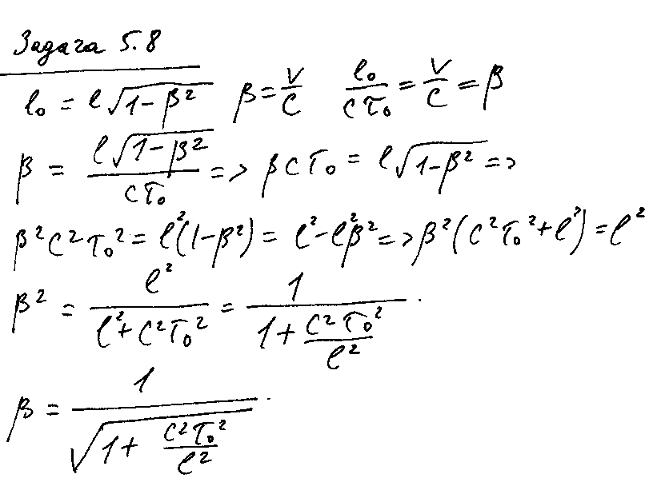 Задача 5.8
l₀ = l√(1-β²) β = V/C l₀/(Cτ₀) = V/C = β
β = l√(1-β²)/(Cτ₀) => βCτ₀ = l√(1-β²) =>
β²C²τ₀² = l²(1-β²) = l²-l²β² => β²(C²τ₀²+l²) = l²
β² = l²/(l²+C²τ₀²) = 1/(1+C²τ₀²/l²).
β = 1/√(1+C²τ₀²/l²).